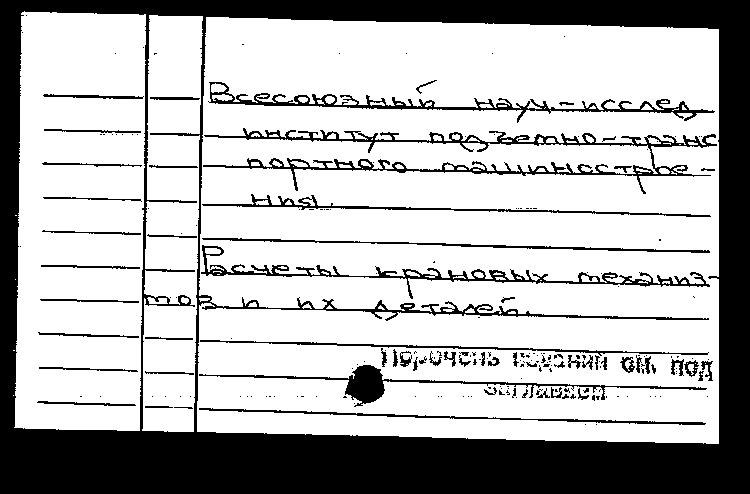 Всесоюзный науч.-исслед.
институт подъемно-транс
портного машинострое-
ния.
Расчеты крановых механиз-
мов и их деталей.
Перечень изданий см. под
заглавием